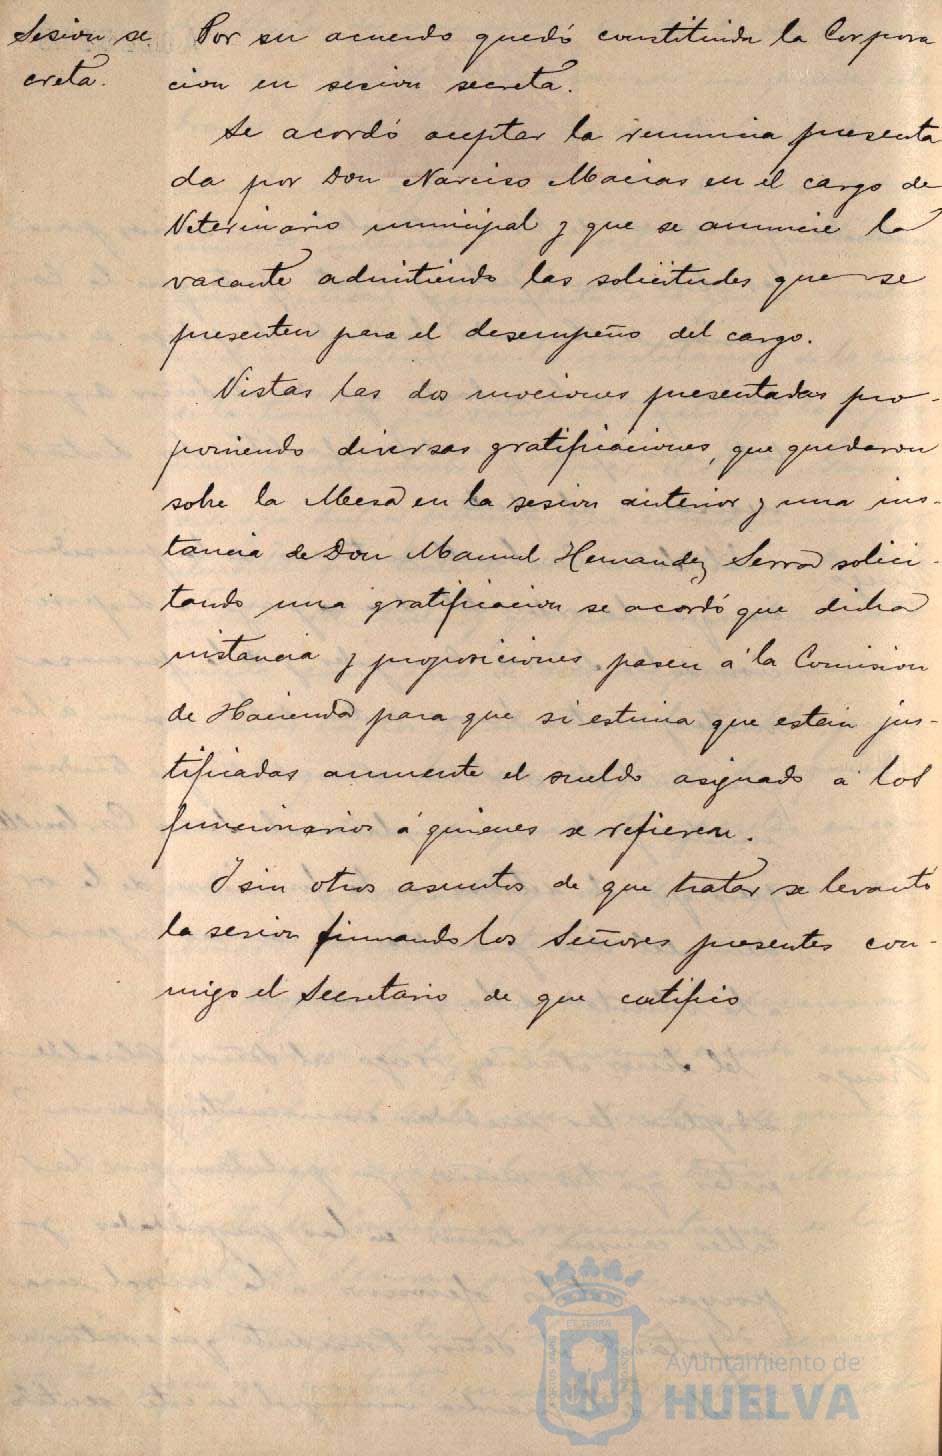 Sesion se
creta.
Por su acuerdo quedó constituida la Corpora
cion en sesion secreta.
Se acordó aceptar la renuncia presenta
da por Don Narciso Macias en el cargo de
Veterinario municipal y que se anuncie la
vacante admitiendo las solicitudes que se
presenten para el desempeño del cargo.
Vistas las dos mociones presentadas pro-
poniendo diversas gratificaciones, que quedaron
sobre la Mesa en la sesion anterior y una ins-
tancia de Don Manuel Hernandez Serra solici-
tando una gratificacion se acordó que dicha
instancia y proposiciones pasen á la Comision
de Hacienda para que si estima que estan jus-
tificadas aumente el sueldo asignado á los
funcionarios á quienes se refieren.
Y sin otros asuntos de que tratar se levantó
la sesion firmando los Señores presentes con-
migo el Secretario de que certifico
Ayuntamiento de
HUELVA